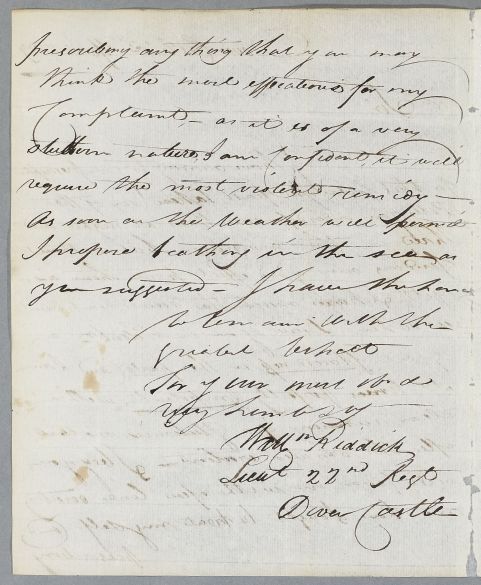 prescribing any thing that you may
think the most efficatious for my
Complaint, – as it is of a very
stubborn nature, I am Confident, it will
require the most violent remidy –
as soon as the Weather will permit
I propose bathing in the sea as
you suggested – I have the honor
to remain with the
greatest respect
Sir your most obd
very humb
Willm Riddick
Lieut 22nd Regt
Dover Castle